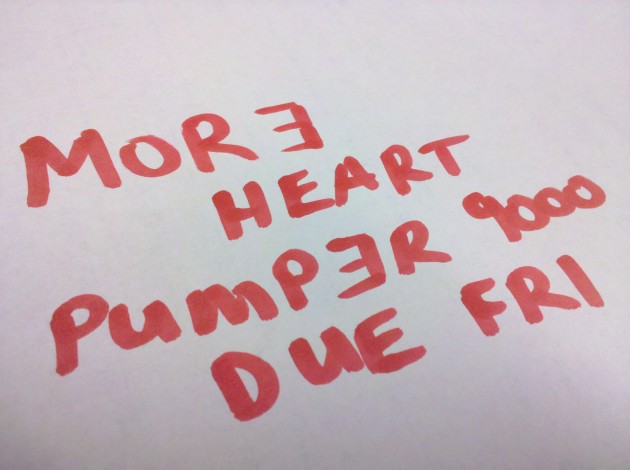 MORE
HEART
PUMPER 9000
DUE FRI